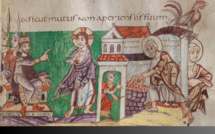 &sicut mutus non aperiens os suum